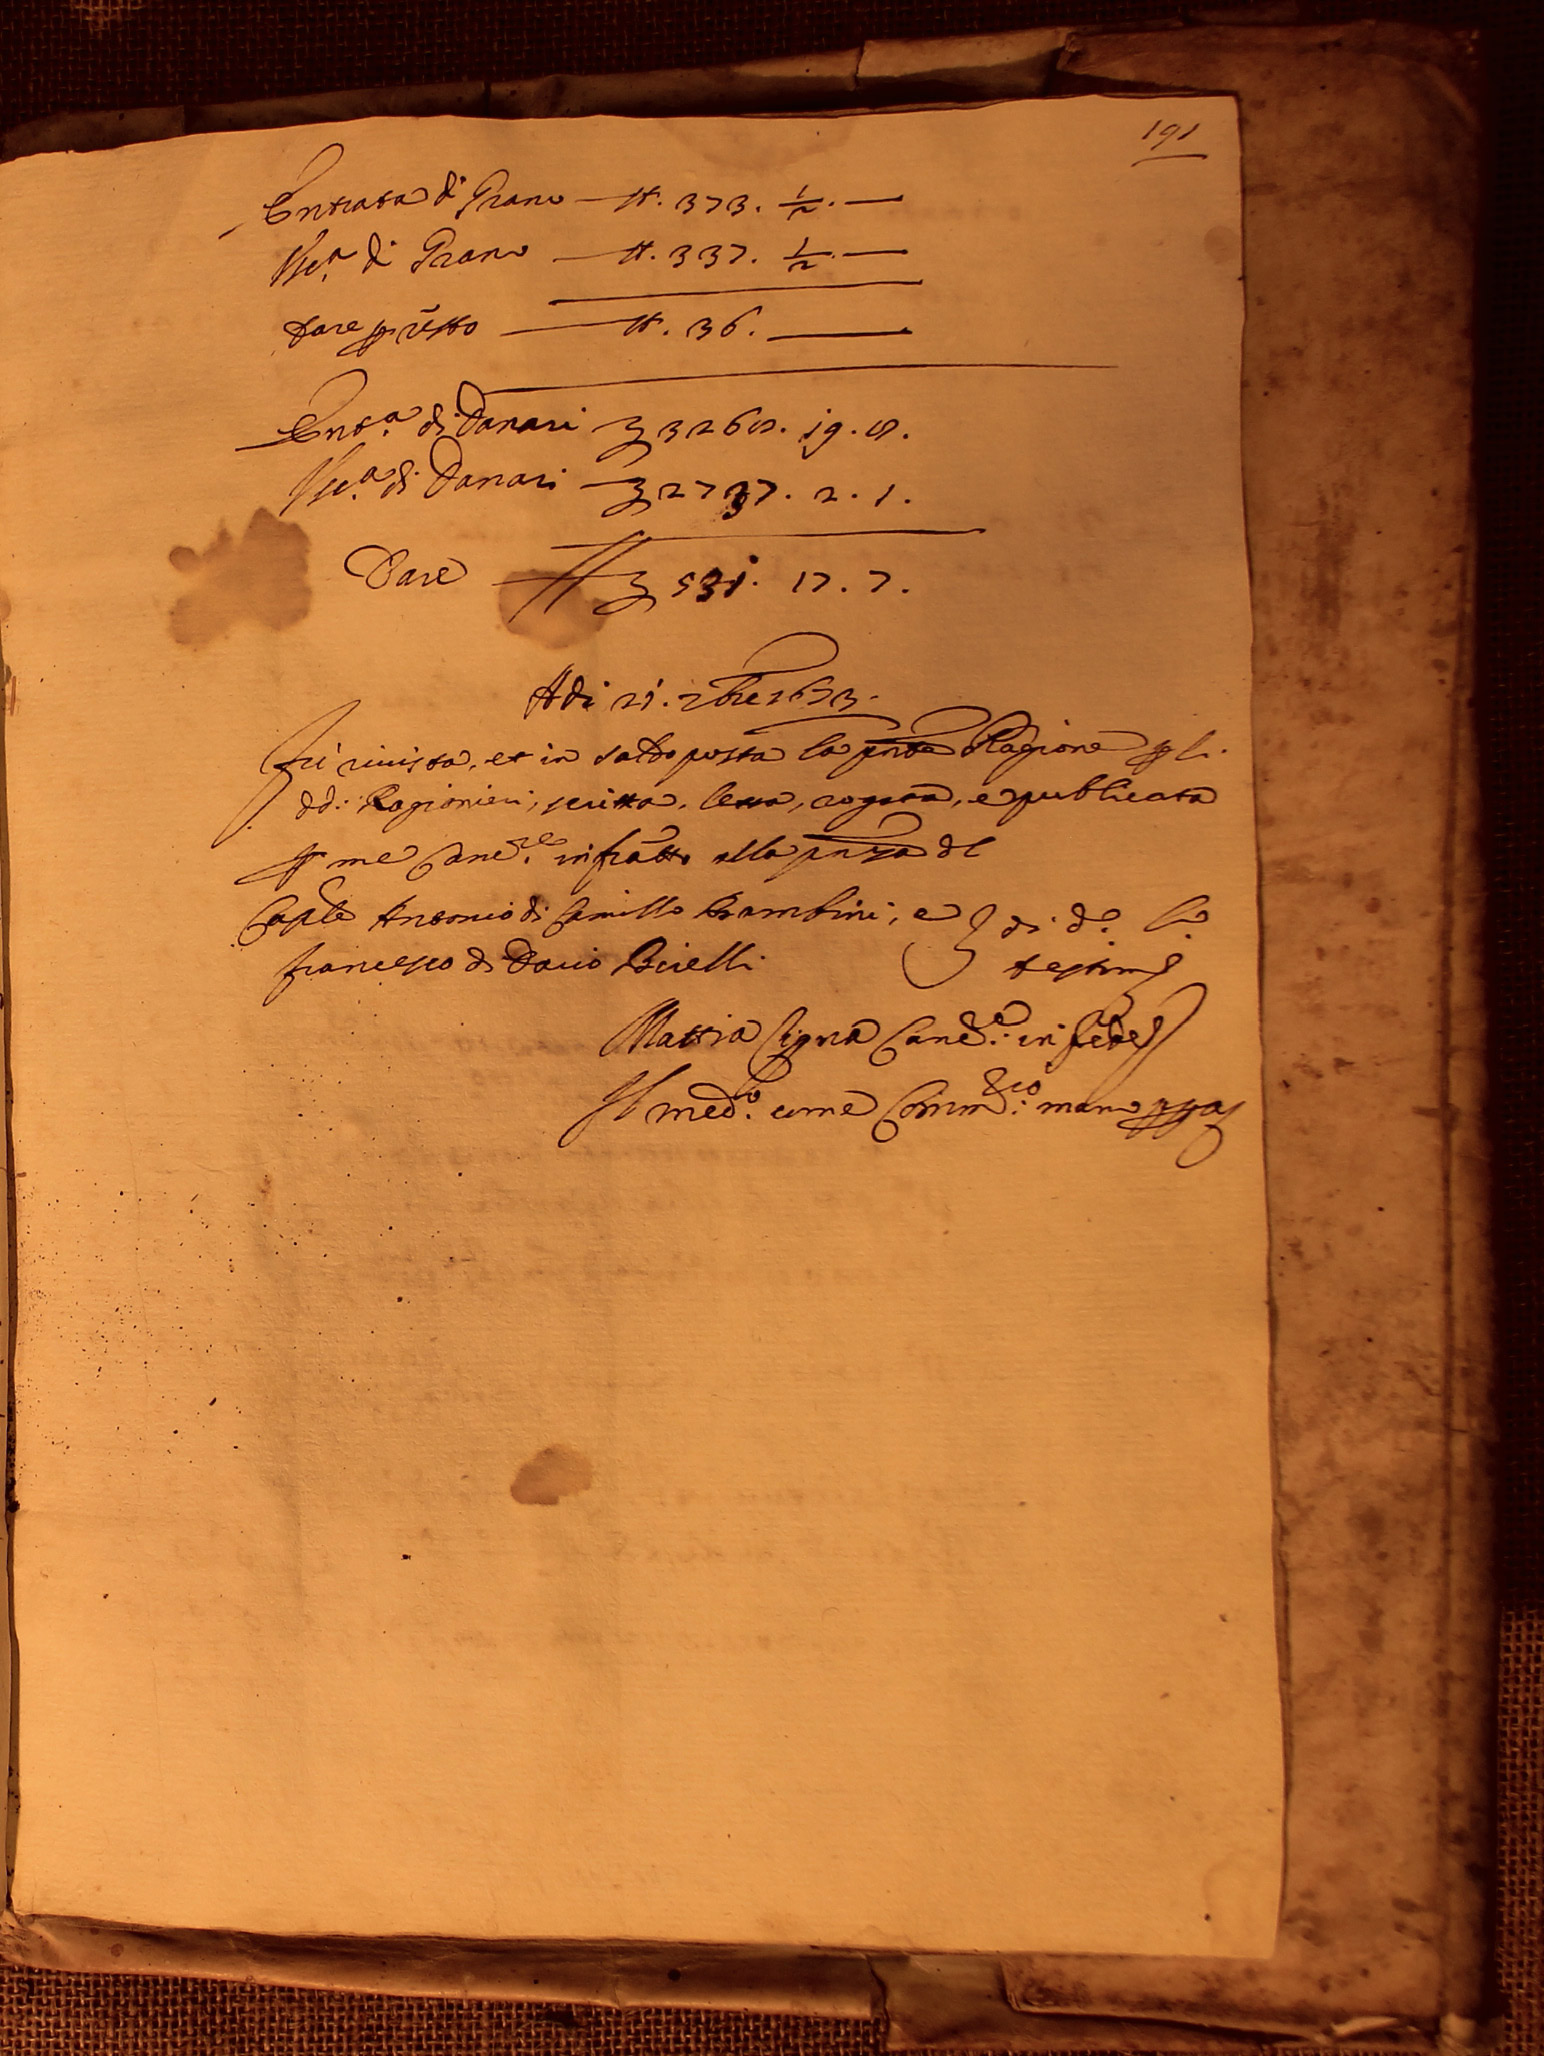 191
Entrata di Grano — st. 373. 1/2. —
Usc.a di Grano — st. 337. 1/2. —
Dare p resto — st. 36. —
Ent.a di Danari — 3268. 19. 8.
Usc.a di Danari — 2737. 2. 1.
Dare — 531. 17. 7.
Adi 21. 7bre 1673.
Fù rivista, et in saldo posta la pnte Ragione p li
dd: Ragionieri, scritta, letta, rogata, e publicata
p me Canc.re infratto alla pnza dl
Caple Antonio di Camillo Brambini, e di d.o lo.
Francesco di Dario Birelli testimj
Mattia Cigna Canc.e in fede
Il med.o come Comm.rio mano ppa